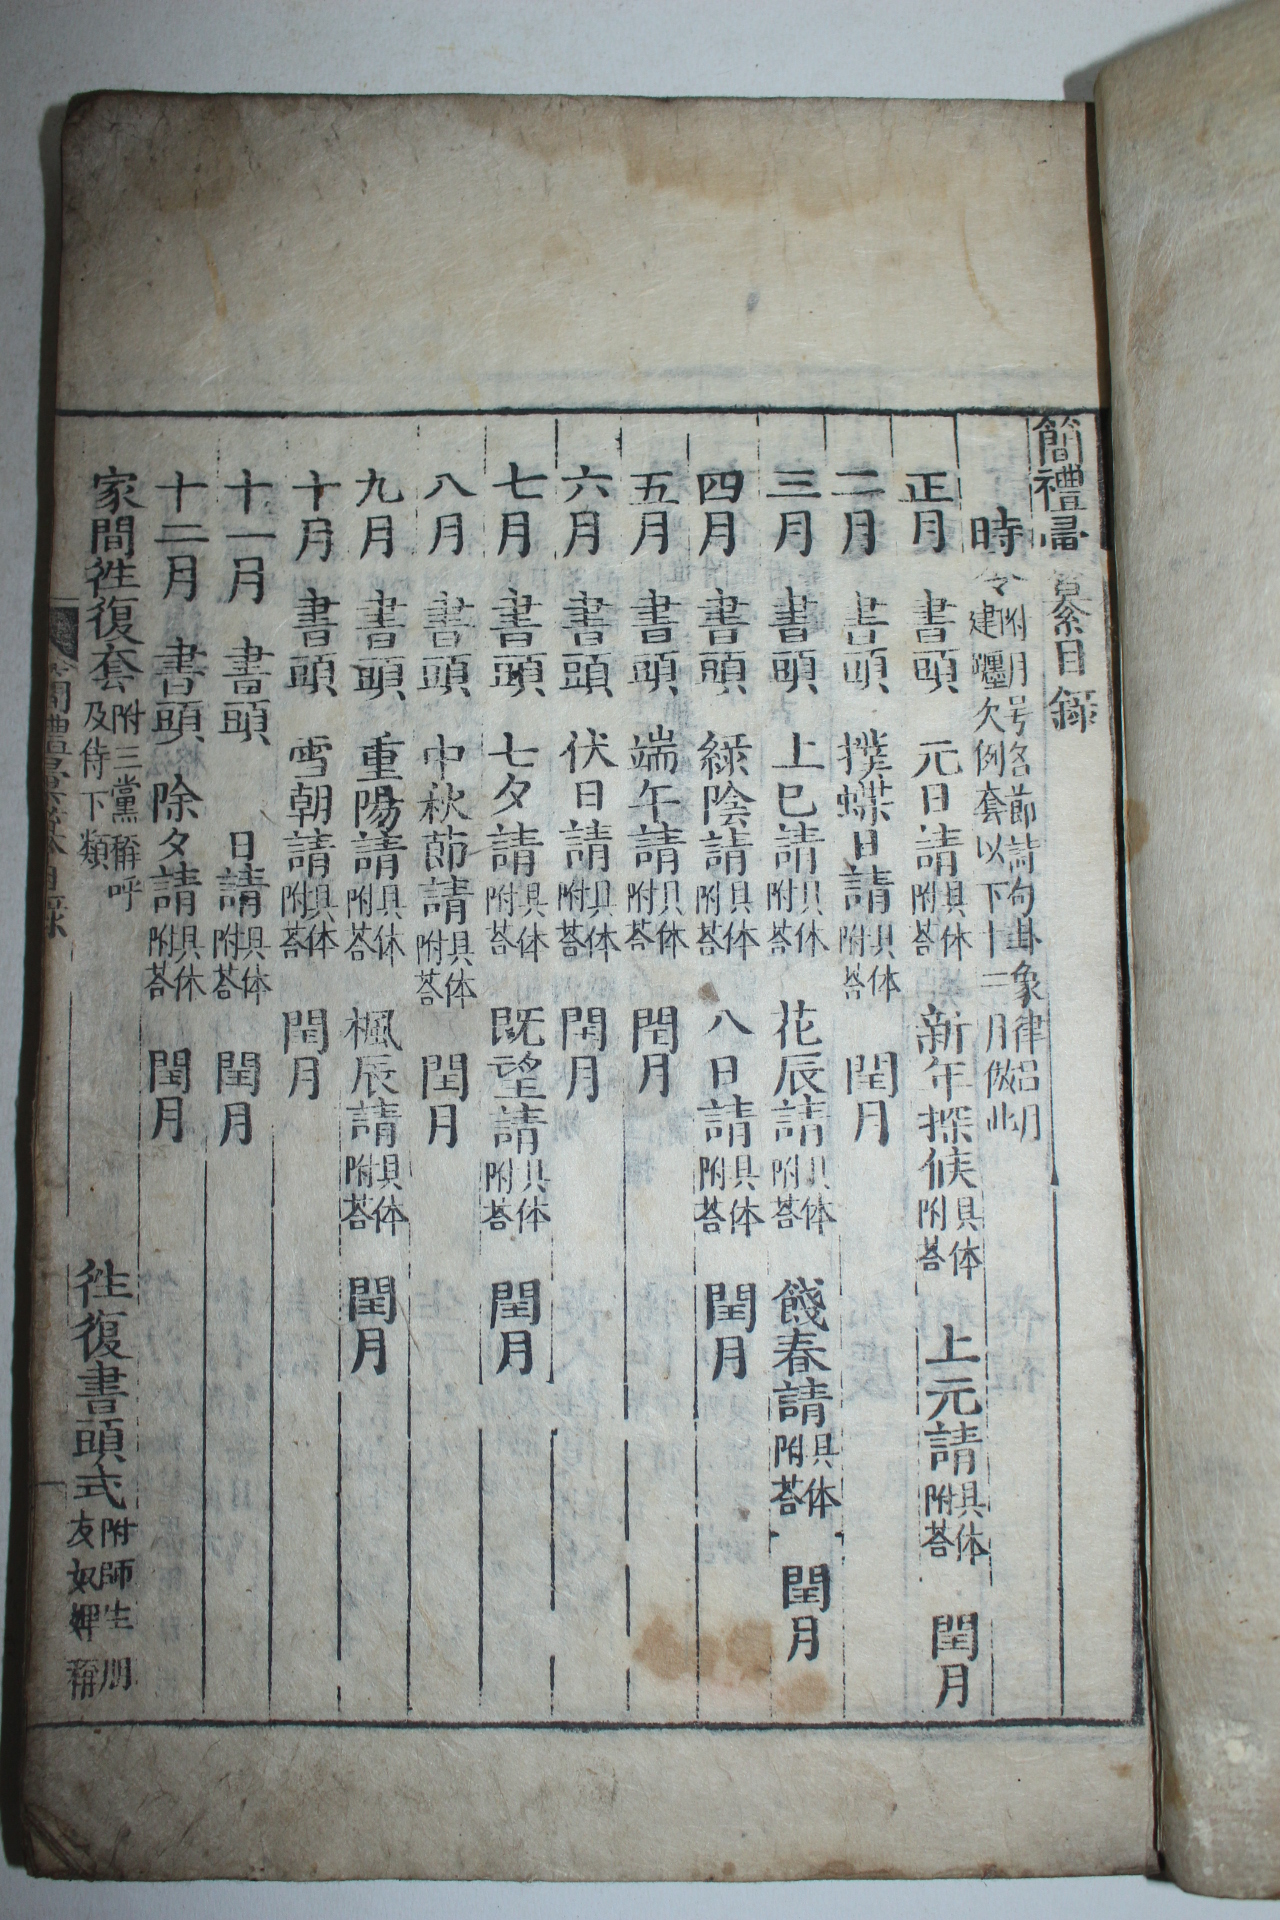 簡禮彙纂目錄
時令附月号各節詩句卦象律呂月建躔次例套以下十二月倣此
正月 書頭 元日請具体附荅 新年探候具体附荅 上元請具体附荅 閏月
二月 書頭 撲蝶日請具体附荅 閏月
三月 書頭 上巳請具体附荅 花辰請具体附荅 餞春請具体附荅 閏月
四月 書頭 綠陰請具体附荅 八日請具体附荅 閏月
五月 書頭 端午請具体附荅 閏月
六月 書頭 伏日請具体附荅 閏月
七月 書頭 七夕請具体附荅 旣望請具体附荅 閏月
八月 書頭 中秋節請具体附荅 閏月
九月 書頭 重陽請具体附荅 楓辰請具体附荅 閏月
十月 書頭 雪朝請具体附荅 閏月
十一月 書頭 日請具体附荅 閏月
十二月 書頭 除夕請具体附荅 閏月
家間徃復套附三黨稱呼及侍下類 徃復書頭式附師生朋友奴婢稱